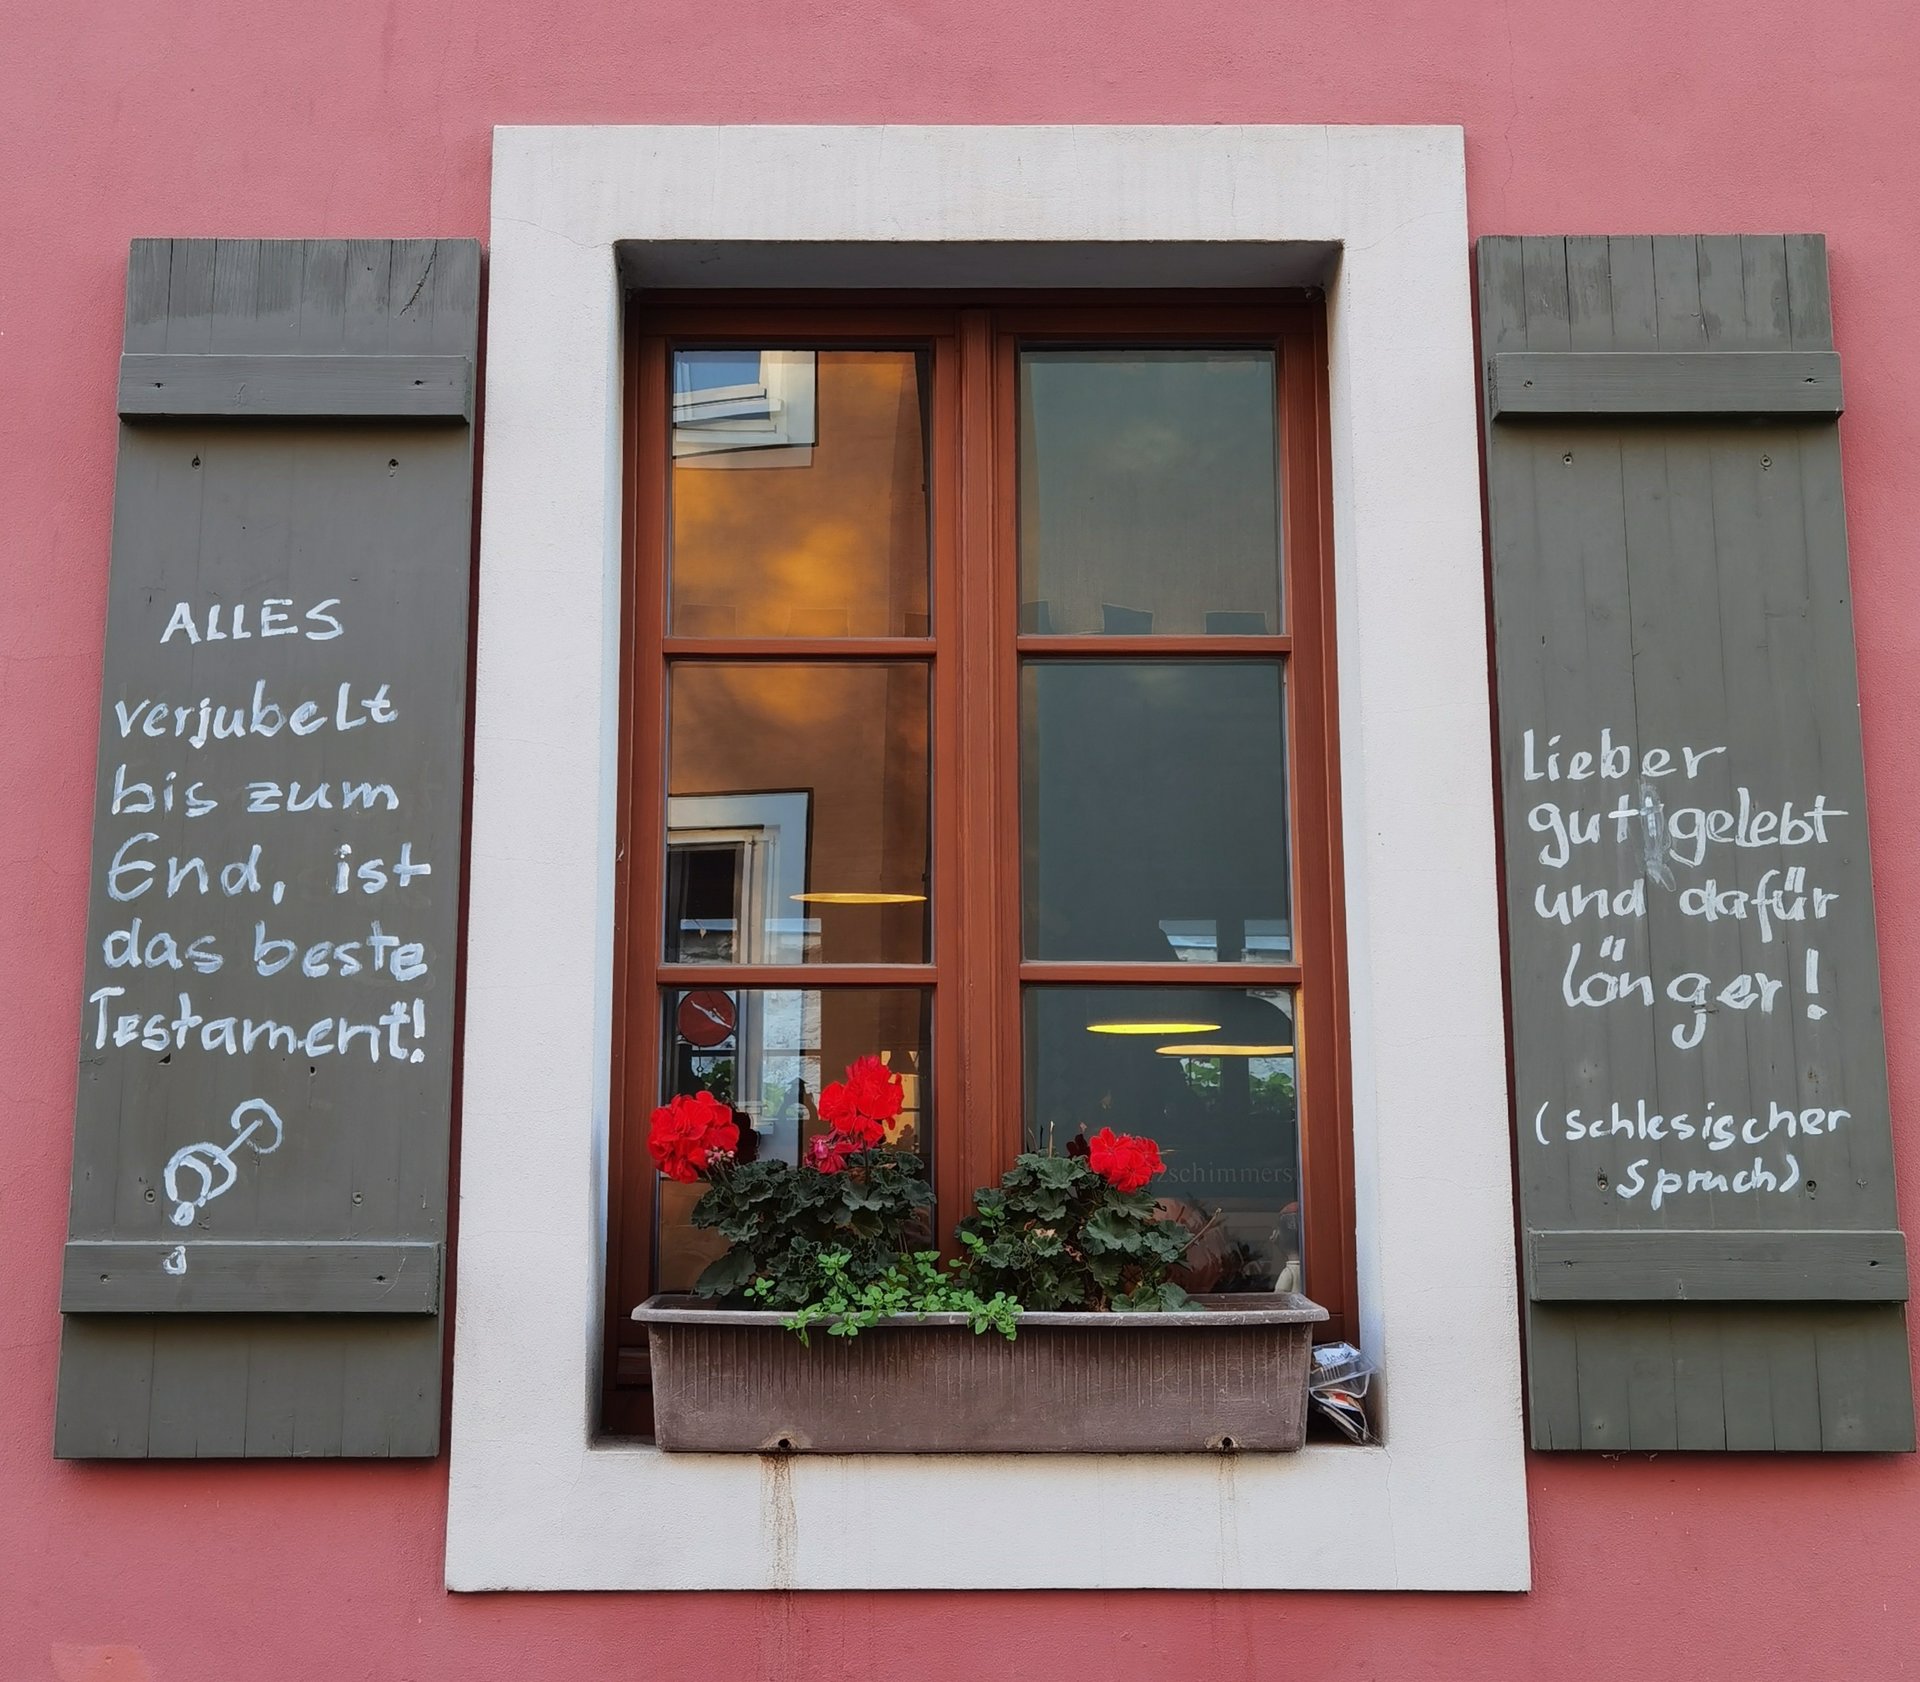 ALLES
verjubelt
bis zum
End, ist
das beste
Testament!
lieber
gut gelebt
und dafür
länger!
(schlesischer
Spruch)